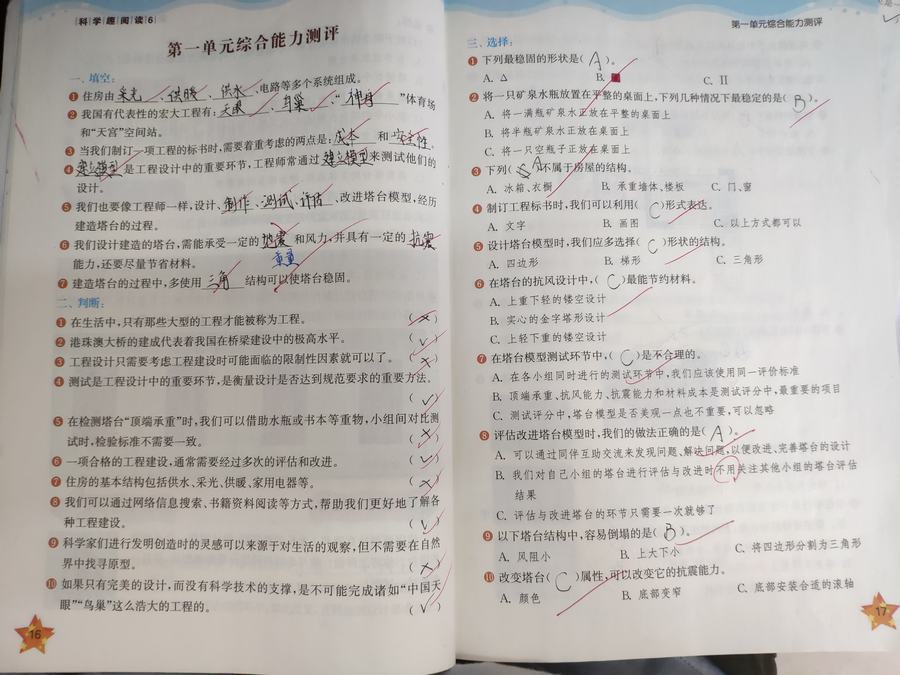 科学趣阅读6
第一单元综合能力测评
一、填空:
1 住房由采光、供暖、供水、电路等多个系统组成。
2 我国有代表性的宏大工程有:天眼、鸟巢、“神舟”体育场
和“天宫”空间站。
3 当我们制订一项工程的标书时,需要着重考虑的两点是:成本和安全性。
4 建立模型是工程设计中的重要环节,工程师常通过建立模型来测试他们的
设计。
5 我们也要像工程师一样,设计、制作、测试、评估、改进塔台模型,经历
建造塔台的过程。
6 我们设计建造的塔台,需能承受一定的地震和风力,并具有一定的抗震
重量
能力,还要尽量节省材料。
7 建造塔台的过程中,多使用三角结构可以使塔台稳固。
二、判断:
1 在生活中,只有那些大型的工程才能被称为工程。(×)
2 港珠澳大桥的建成代表着我国在桥梁建设中的极高水平。(√)
3 工程设计只需要考虑工程建设时可能面临的限制性因素就可以了。(×)
4 测试是工程设计中的重要环节,是衡量设计是否达到规范要求的重要方法。
(√)
5 在检测塔台“顶端承重”时,我们可以借助水瓶或书本等重物,小组间对比测
试时,检验标准不需要一致。(×)
6 一项合格的工程建设,通常需要经过多次的评估和改进。(√)
7 住房的基本结构包括供水、采光、供暖、家用电器等。(×)
8 我们可以通过网络信息搜索、书籍资料阅读等方式,帮助我们更好地了解各
种工程建设。(√)
9 科学家们进行发明创造时的灵感可以来源于对生活的观察,但不需要在自然
界中找寻原型。(×)
10 如果只有完美的设计,而没有科学技术的支撑,是不可能完成诸如“中国天
眼”“鸟巢”这么浩大的工程的。(√)
16
第一单元综合能力测评
三、选择:
1 下列最稳固的形状是(A)。
A. △ B. C. Ⅱ
2 将一只矿泉水瓶放置在平整的桌面上,下列几种情况下最稳定的是(B)。
A. 将一满瓶矿泉水正放在平整的桌面上
B. 将半瓶矿泉水正放在桌面上
C. 将一只空瓶子正放在桌面上
3 下列(A)不属于房屋的结构。
A. 冰箱、衣橱 B. 承重墙体、楼板 C. 门、窗
4 制订工程标书时,我们可以利用(C)形式表达。
A. 文字 B. 画图 C. 以上方式都可以
5 设计塔台模型时,我们应多选择(C)形状的结构。
A. 四边形 B. 梯形 C. 三角形
6 在塔台的抗风设计中,(C)最能节约材料。
A. 上重下轻的镂空设计
B. 实心的金字塔形设计
C. 上轻下重的镂空设计
7 在塔台模型测试环节中,(C)是不合理的。
A. 在各小组同时进行的测试环节中,我们应该使用同一评价标准
B. 顶端承重、抗风能力、抗震能力和材料成本是测试评分中,最重要的项目
C. 测试评分中,塔台模型是否美观一点也不重要,可以忽略
8 评估改进塔台模型时,我们的做法正确的是(A)。
A. 可以通过同伴互助交流来发现问题、解决问题,以便改进、完善塔台的设计
B. 我们对自己小组的塔台进行评估与改进时不用关注其他小组的塔台评估
结果
C. 评估与改进塔台的环节只需要一次就够了
9 以下塔台结构中,容易倒塌的是(B)。
A. 风阻小 B. 上大下小 C. 将四边形分割为三角形
10 改变塔台(C)属性,可以改变它的抗震能力。
A. 颜色 B. 底部变窄 C. 底部安装合适的滚轴
17